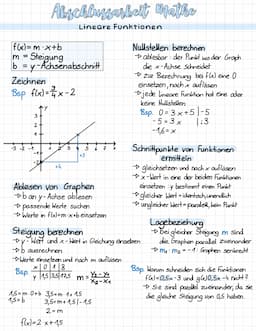 Abschlussarbeit Mathe
Lineare Funktionen
f(x)=m·x+b
m = Steigung
b = y-Achsenabschnitt
Zeichnen
Bsp. f(x)=3/4x-2
Ablesen von Graphen
b an y-Achse ablesen
passende Werte suchen
Werte in f(x)=m·x+b einsetzen
Steigung berechnen
y-Wert und x-Wert in Gleichung einsetzen
b ausrechnen
Werte einsetzen und nach m auflösen
Bsp.
f(x)=2x+1,5
Nullstellen berechnen
der Punkt wo der Graph
die x-Achse schneidet
zur Berechnung bei f(x) eine 0
einsetzen, nach x auflösen
jede lineare Funktion hat eine oder
keine Nullstellen
Bsp. 0=3x+5 |-5
-5=3x |:3
-1,6=x
Schnittpunkte von Funktionen
ermitteln
gleichsetzen und nach x auflösen
x-Wert in eine der beiden Funktionen
einsetzen → y bestimmt einen Punkt
gleicher Wert=identisch, unendlich
ungleicher Wert=parallel, kein Punkt
Lagebeziehung
Bei gleicher Steigung m sind
die Graphen parallel zueinander
m₁·m₂=-1 → Graphen senkrecht
Bsp. Warum schneiden sich die Funktionen
f(x)=0,5x-3 und g(x)=0,5x → nicht?
Sie sind parallel zueinander, da sie
die gleiche Steigung von 0,5 haben.